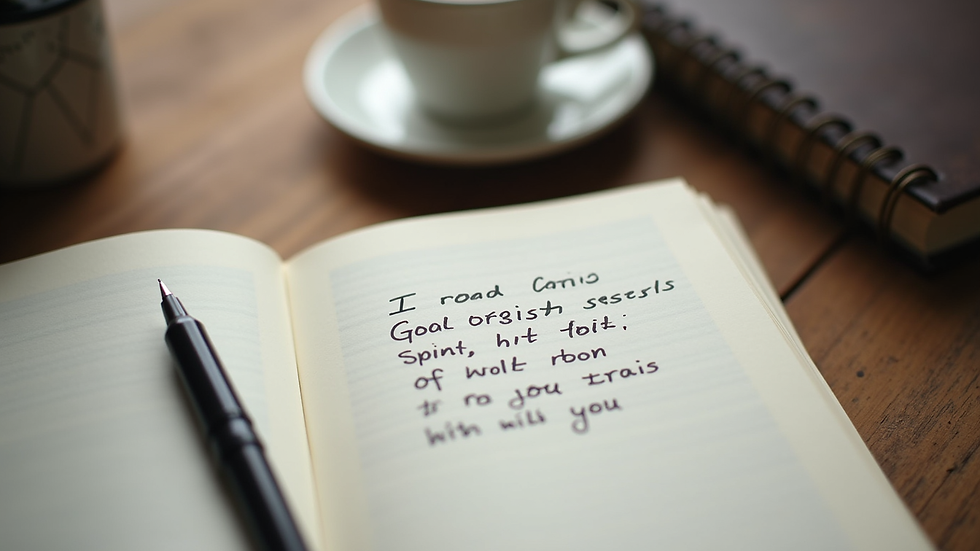 I road
Goal orgisth sesesls
Spint, hit foit;
of wolt rbon
tr ra jou trais
with will you